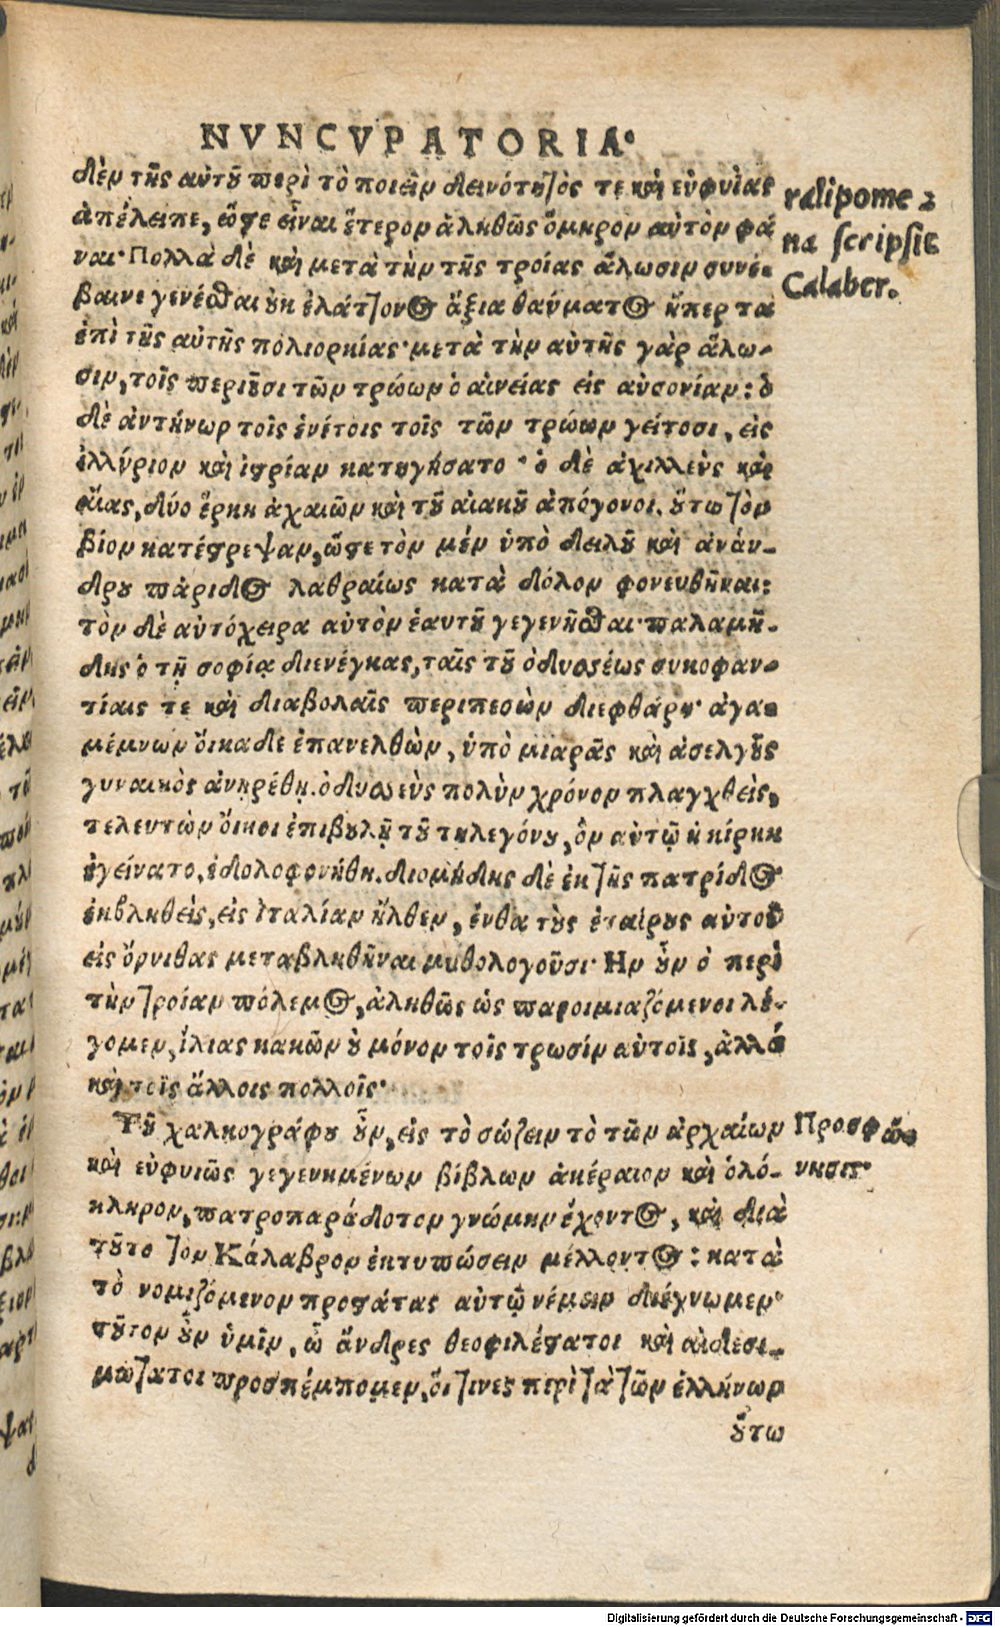 NVNCVPATORIA.
δὲν τῆς αὐτοῦ περὶ τὸ ποιεῖν δεινότητός τε καὶ εὐφυΐας
ἀπέλειπε, ὥστε εἶναι ἕτερον ἀληθῶς ὅμηρον αὐτὸν φά
ναι· Πολλὰ δὲ καὶ μετὰ τὴν τῆς τροίας ἅλωσιν συνέ-
βαινε γενέσθαι οὐκ ἐλάττονος ἄξια θαύματος ἤπερ τὰ
ἐπὶ τῆς αὐτῆς πολιορκίας· μετὰ τὴν αὐτῆς γὰρ ἅλω-
σιν, τοῖς περιοῦσι τῶν τρώων ὁ αἰνείας εἰς αὐσονίαν: ὁ
δὲ ἀντήνωρ τοῖς ἐνέτοις τοῖς τῶν τρώων γείτοσι, εἰς
ἰλλύριον καὶ ἰστρίαν κατηγήσατο · ὁ δὲ ἀχιλλεὺς καὶ
αἴας, δύο ἕρκη ἀχαιῶν καὶ τοῦ αἰακοῦ ἀπόγονοι. οὕτω τὸν
βίον κατέστρεψαν, ὥστε τὸν μέν ὑπὸ δειλοῦ καὶ ἀνάν-
δρου πάριδος λαθραίως κατὰ δόλον φονευθῆναι:
τὸν δὲ αὐτόχειρα αὐτὸν ἑαυτῇ γεγενῆσθαι· παλαμή-
δης ὁ τῇ σοφίᾳ διενέγκας, ταῖς τοῦ ὀδυσσέως συκοφαν-
τίαις τε καὶ διαβολαῖς περιπεσὼν διεφθάρη· ἀγα-
μέμνων ὄικαδε ἐπανελθὼν, ὑπὸ μιαρᾶς καὶ ἀσελγοῦς
γυναικὸς ἀνῃρέθη. ὀδυσσεὺς πολὺν χρόνον πλαγχθεὶς,
τελευτῶν ὄικοι ἐπιβουλῇ τοῦ τηλεγόνου, ὃν αὐτῷ ἡ κίρκη
ἐγείνατο, ἐδολοφονήθη. διομήδης δὲ ἐκ τῆς πατρίδος
ἐκβληθεὶς, εἰς Ἰταλίαν ἦλθεν, ἔνθα τοὺς ἑταίρους αὐτοῦ
εἰς ὄρνιθας μεταβληθῆναι μυθολογοῦσι· Ην οὖν ὁ περὶ
τὴν τροίαν πόλεμος, ἀληθῶς ὡς παροιμιαζόμενοι λέ-
γομεν, ἴλιας κακῶν οὐ μόνον τοῖς τρωσίν αὐτοῖς, ἀλλὰ
καὶ τοῖς ἄλλοις πολλοῖς·
Τοῦ χαλκογράφου οὖν, εἰς τὸ σώζειν τὸ τῶν ἀρχαίων
καὶ εὐφυιῶς γεγενημένων βίβλων ἀκέραιον καὶ ὁλό-
κληρον, πατροπαράδοτον γνώμην ἔχοντος, καὶ διὰ
τοῦτο τον Κάλαβρον ἐκτυπώσειν μέλλοντος: κατὰ
τὸ νομιζόμενον προστάτας αὐτῷ νέμειν διέγνωμεν·
τοῦτον οὖν ὑμῖν, ὦ ἄνδρες θεοφιλέστατοι καὶ αἰδεσι-
μώτατοι προσπέμπομεν, ὅι τινες περὶ τὰ τῶν ἑλλήνων
οὕτω
ralipome-
na scripsit
Calaber.
Προσφώ-
νησις·
Digitalisierung gefördert durch die Deutsche Forschungsgemeinschaft - DFG